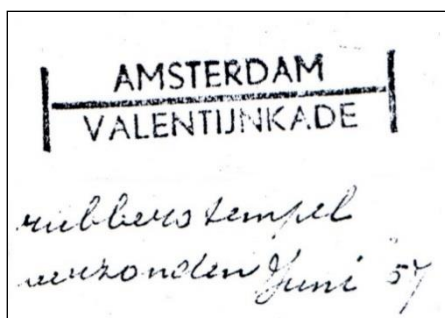 AMSTERDAM
VALENTIJNKADE
rubberstempel
verzonden Juni 57